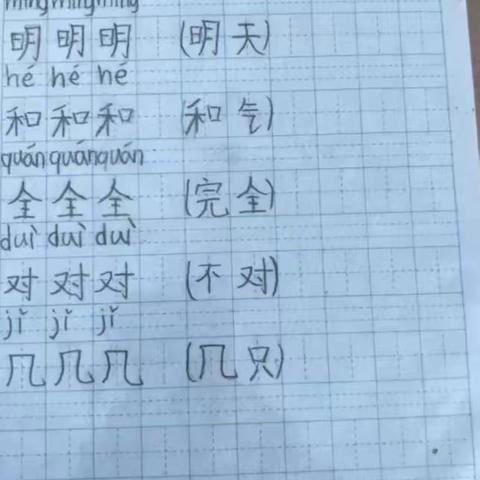 míng míng míng
明 明 明 (明 天)
hé hé hé
和 和 和 (和 气)
quán quán quán
全 全 全 (完 全)
duì duì duì
对 对 对 (不 对)
jǐ jǐ jǐ
几 几 几 (几 只)